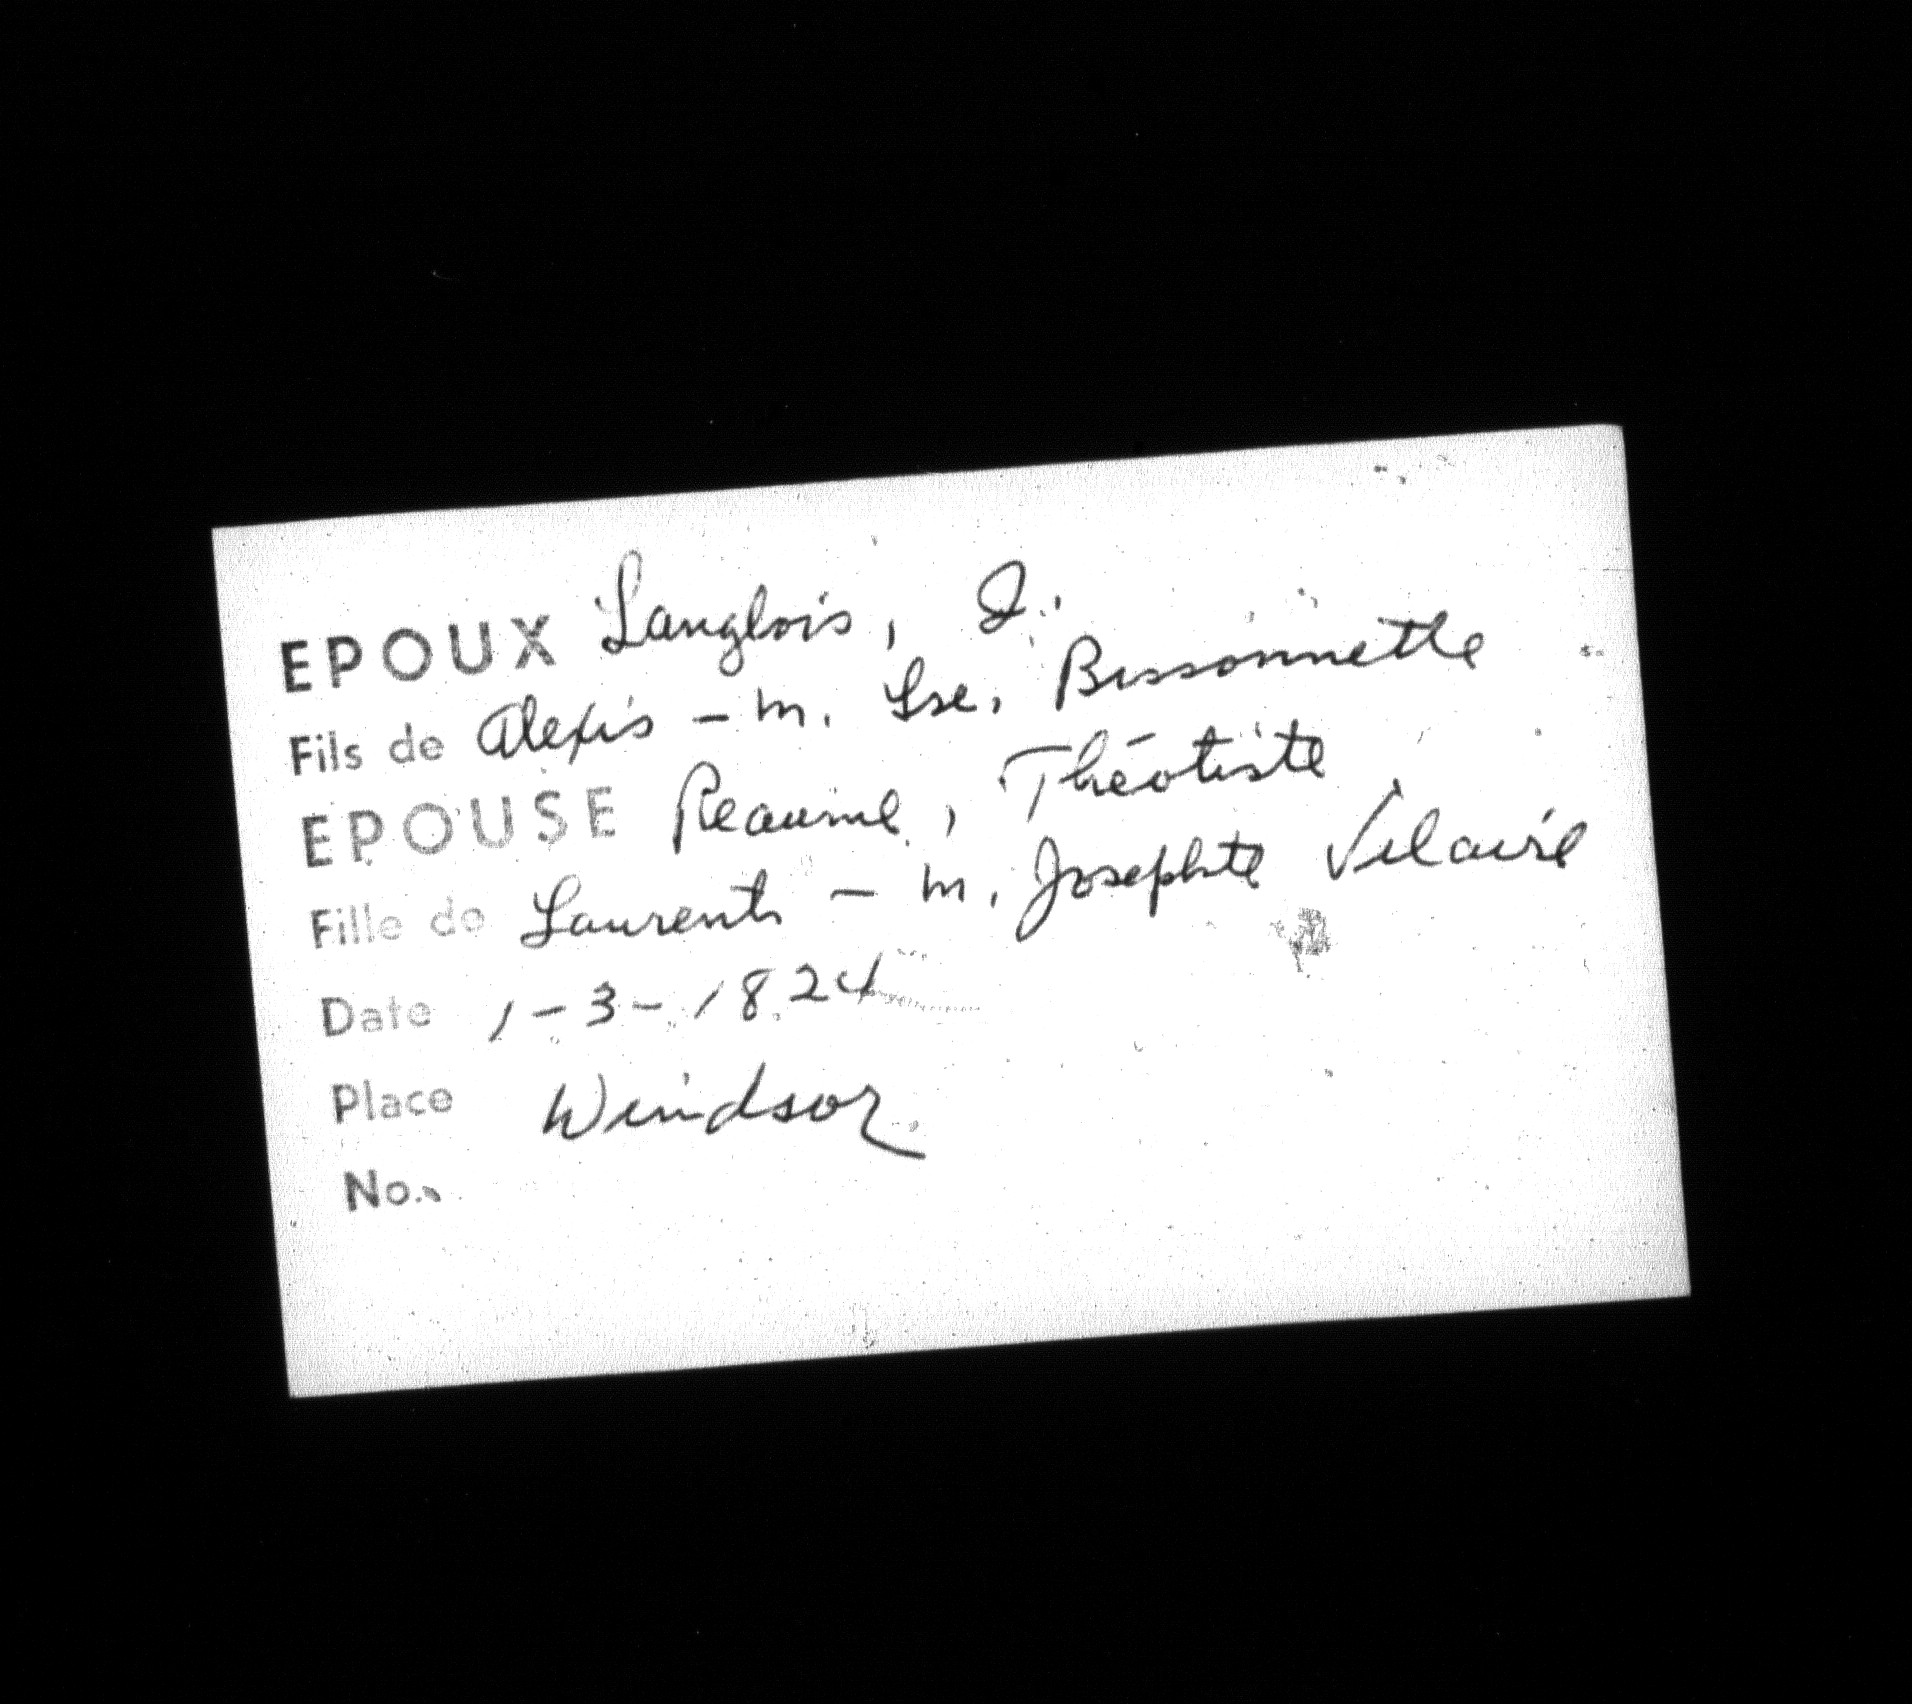 EPOUX Langlois, J.
Fils de Alexis - m. Lse. Bissonnette
EPOUSE Reaume, Théotiste
Fille de Laurent - m. Josephte Vilaire
Date 1-3-1824
Place Windsor
No.